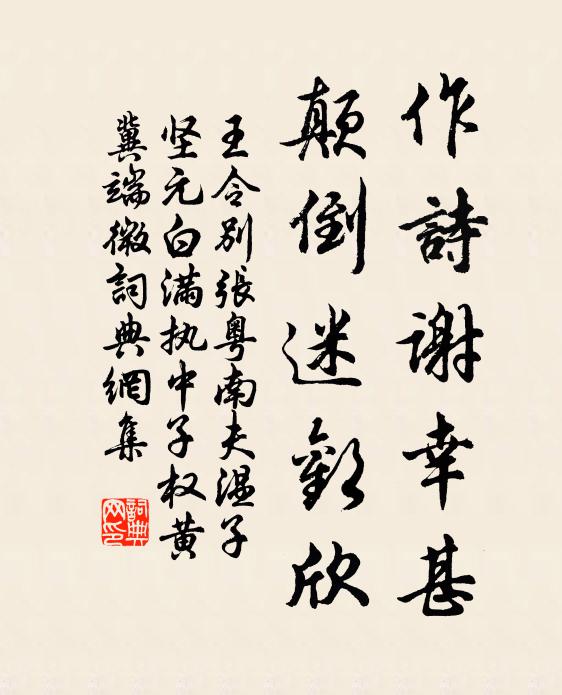 作詩谢幸甚
颠倒迷歡欣
王令别張粤南夫温子
坚元白满执中子权黄
冀端微詞典網集
詞典网印